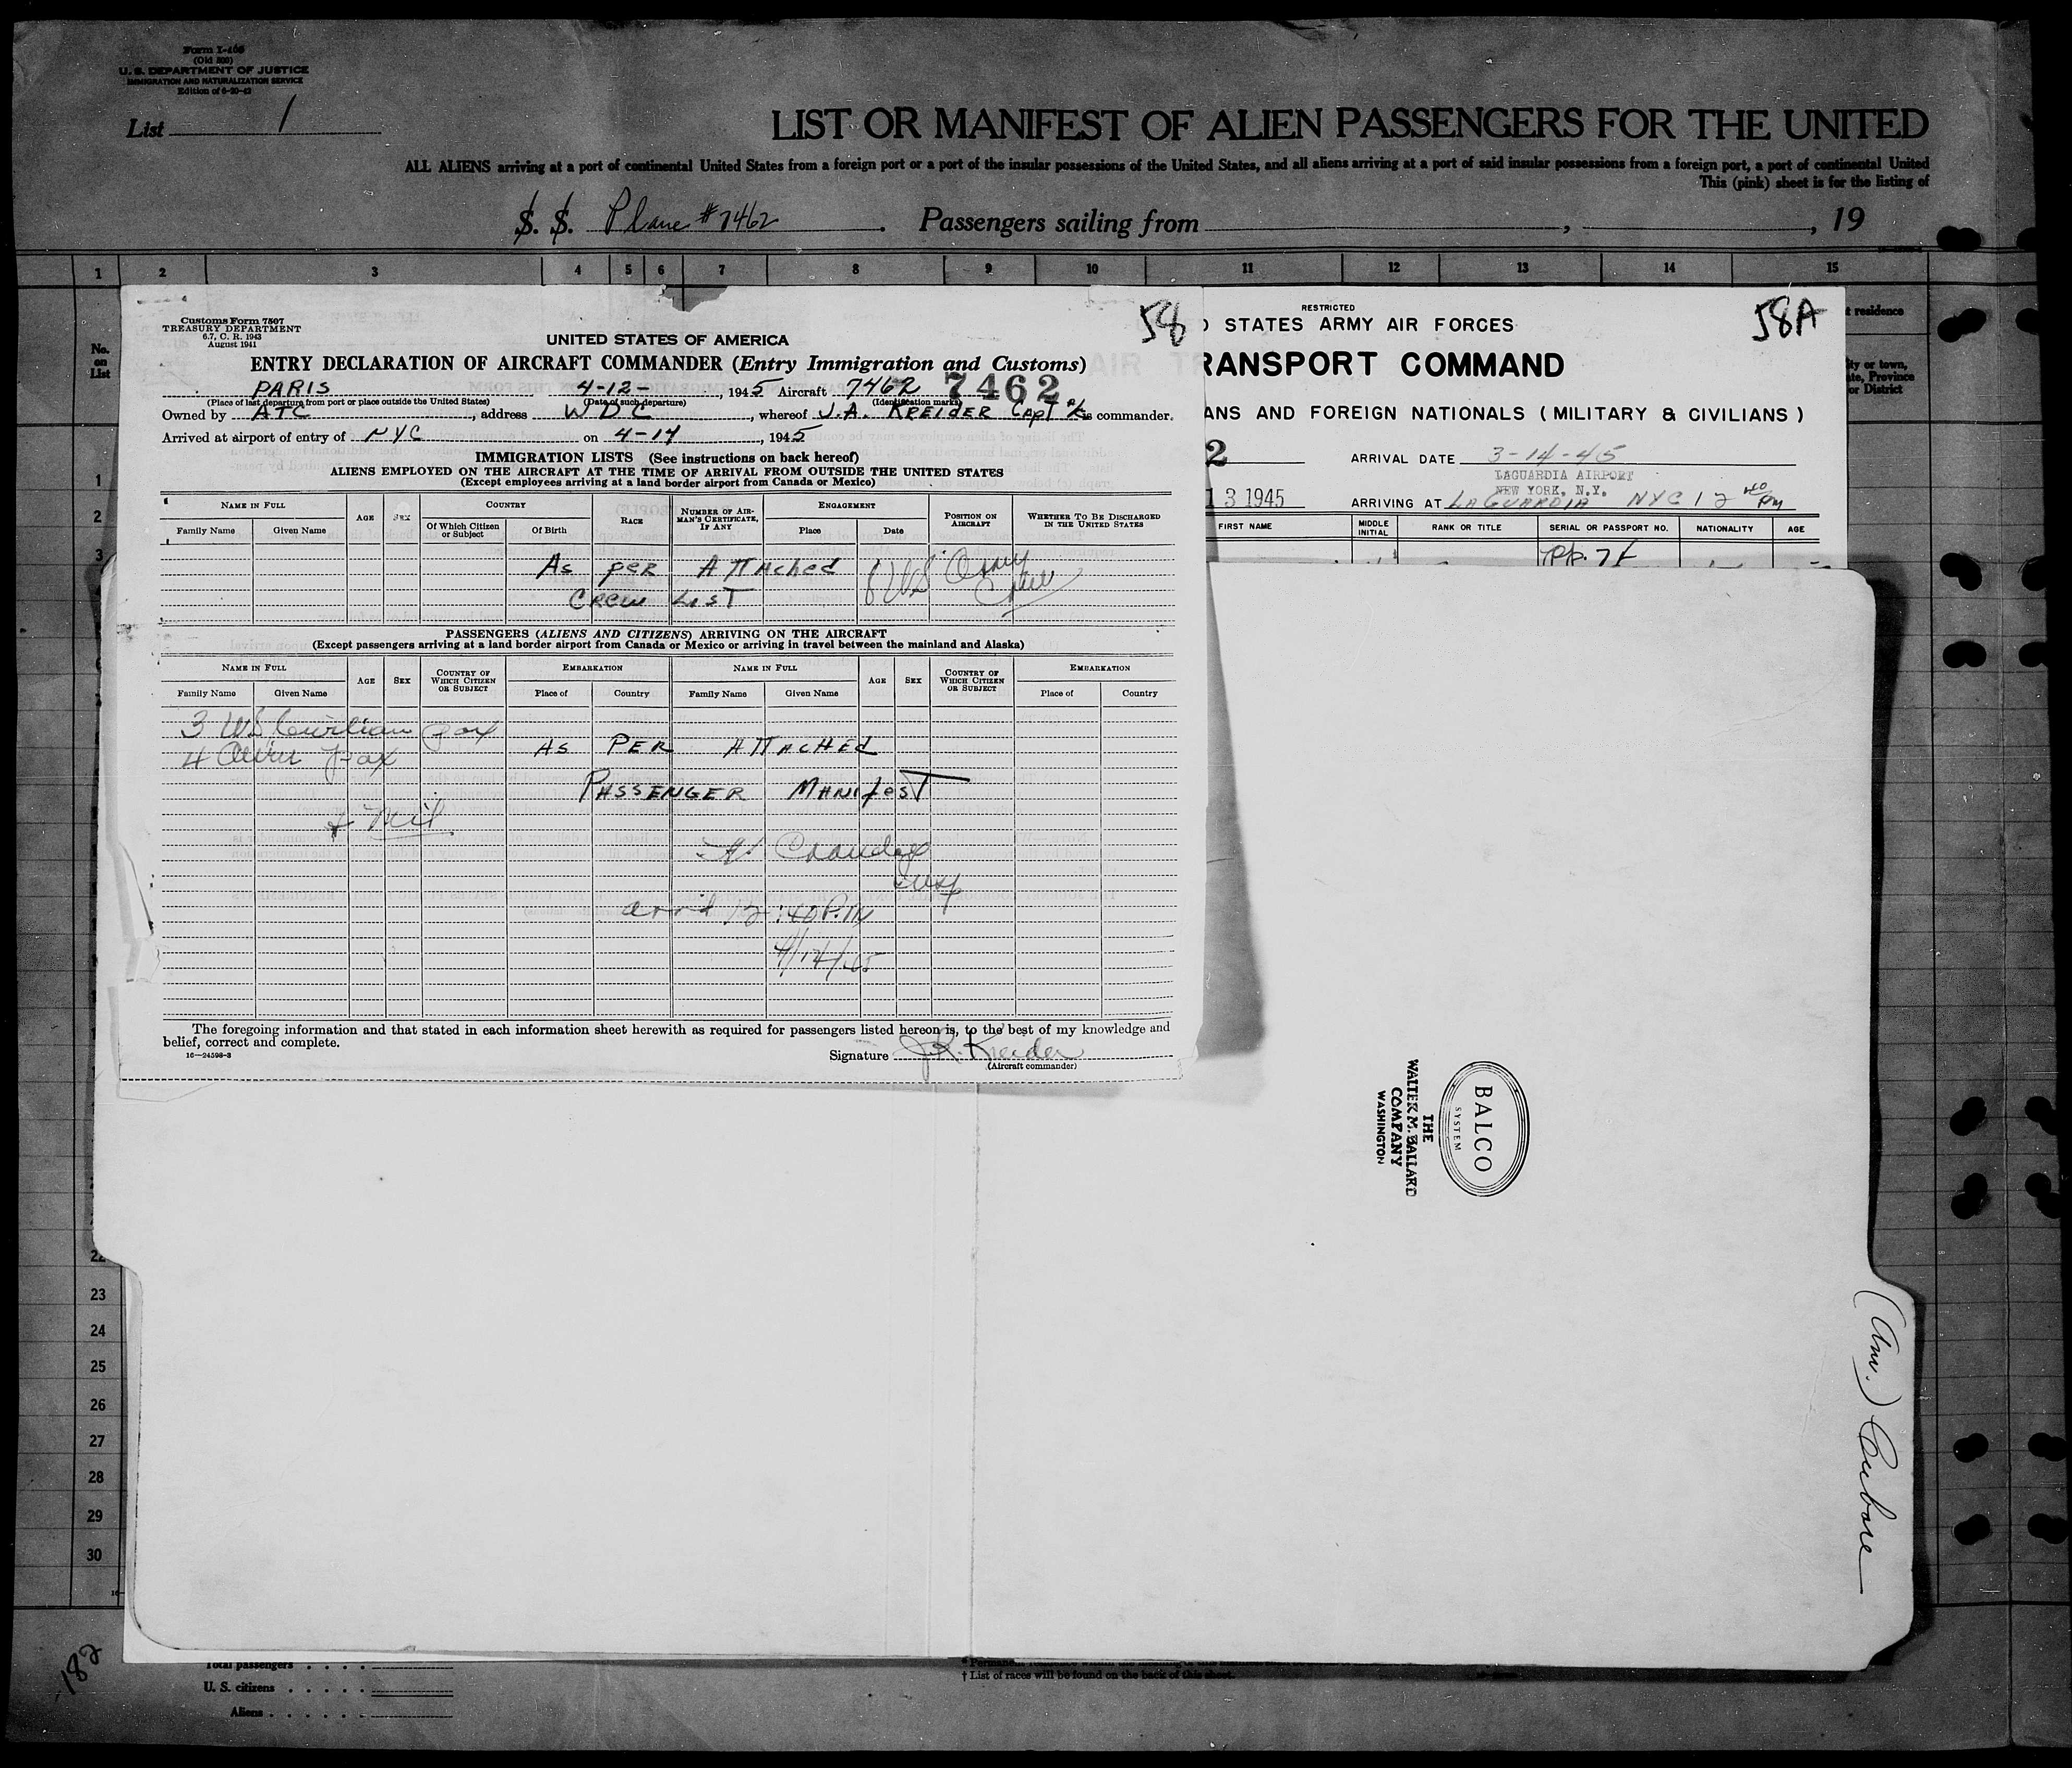 Form I-466
(Old 500)
U. S. DEPARTMENT OF JUSTICE
IMMIGRATION AND NATURALIZATION SERVICE
Edition of 6-20-43
List 1
LIST OR MANIFEST OF ALIEN PASSENGERS FOR THE UNITED
ALL ALIENS arriving at a port of continental United States from a foreign port or a port of the insular possessions of the United States, and all aliens arriving at a port of said insular possessions from a foreign port, a port of continental United
This (pink) sheet is for the listing of
S. S. Plane #7462. Passengers sailing from , , 19
1 2 3 4 5 6 7 8 9 10 11 12 13 14 15
No. on List
residence
ity or town,
ate, Province
or District
1
2
3
Customs Form 7507
TREASURY DEPARTMENT
6.7, C. R. 1943
August 1941
58
UNITED STATES OF AMERICA
ENTRY DECLARATION OF AIRCRAFT COMMANDER (Entry Immigration and Customs)
PARIS 4-12-, 1945 Aircraft 7462 7462
(Place of last departure from port or place outside the United States) (Date of such departure) (Identification marks)
Owned by ATC, address WDC, whereof J.A. KREIDER Capt is commander.
Arrived at airport of entry of NYC on 4-14, 1945
IMMIGRATION LISTS (See instructions on back hereof)
ALIENS EMPLOYED ON THE AIRCRAFT AT THE TIME OF ARRIVAL FROM OUTSIDE THE UNITED STATES
(Except employees arriving at a land border airport from Canada or Mexico)
NAME IN FULL AGE SEX COUNTRY RACE NUMBER OF AIRMAN'S CERTIFICATE, IF ANY ENGAGEMENT POSITION ON AIRCRAFT WHETHER TO BE DISCHARGED IN THE UNITED STATES
Family Name Given Name Of Which Citizen or Subject Of Birth Place Date
As per ATTached
Crew List
PASSENGERS (ALIENS AND CITIZENS) ARRIVING ON THE AIRCRAFT
(Except passengers arriving at a land border airport from Canada or Mexico or arriving in travel between the mainland and Alaska)
NAME IN FULL AGE SEX COUNTRY OF WHICH CITIZEN OR SUBJECT EMBARKATION NAME IN FULL AGE SEX COUNTRY OF WHICH CITIZEN OR SUBJECT EMBARKATION
Family Name Given Name Place of Country Family Name Given Name Place of Country
3 US Civilian Pax
4
As PER ATTACHED
PASSENGER MANIfesT
& Mil
Insp
arrd 12:40 P.M
4/14/45
The foregoing information and that stated in each information sheet herewith as required for passengers listed hereon is, to the best of my knowledge and
belief, correct and complete.
16—24598-3
Signature J.A. Kreider
(Aircraft commander)
RESTRICTED
58A
STATES ARMY AIR FORCES
RANSPORT COMMAND
ANS AND FOREIGN NATIONALS ( MILITARY & CIVILIANS )
2 ARRIVAL DATE 3-14-45
LAGUARDIA AIRPORT
NEW YORK, N.Y.
13 1945 ARRIVING AT LAGUARDIA NYC 12 40 PM
FIRST NAME MIDDLE INITIAL RANK OR TITLE SERIAL OR PASSPORT NO. NATIONALITY AGE
BALCO
SYSTEM
THE
WALTER M. BALLARD
COMPANY
WASHINGTON
22
23
24
25
26
27
28
29
30
182
Total passengers
U. S. citizens
Aliens
† List of races will be found on the back of this sheet.